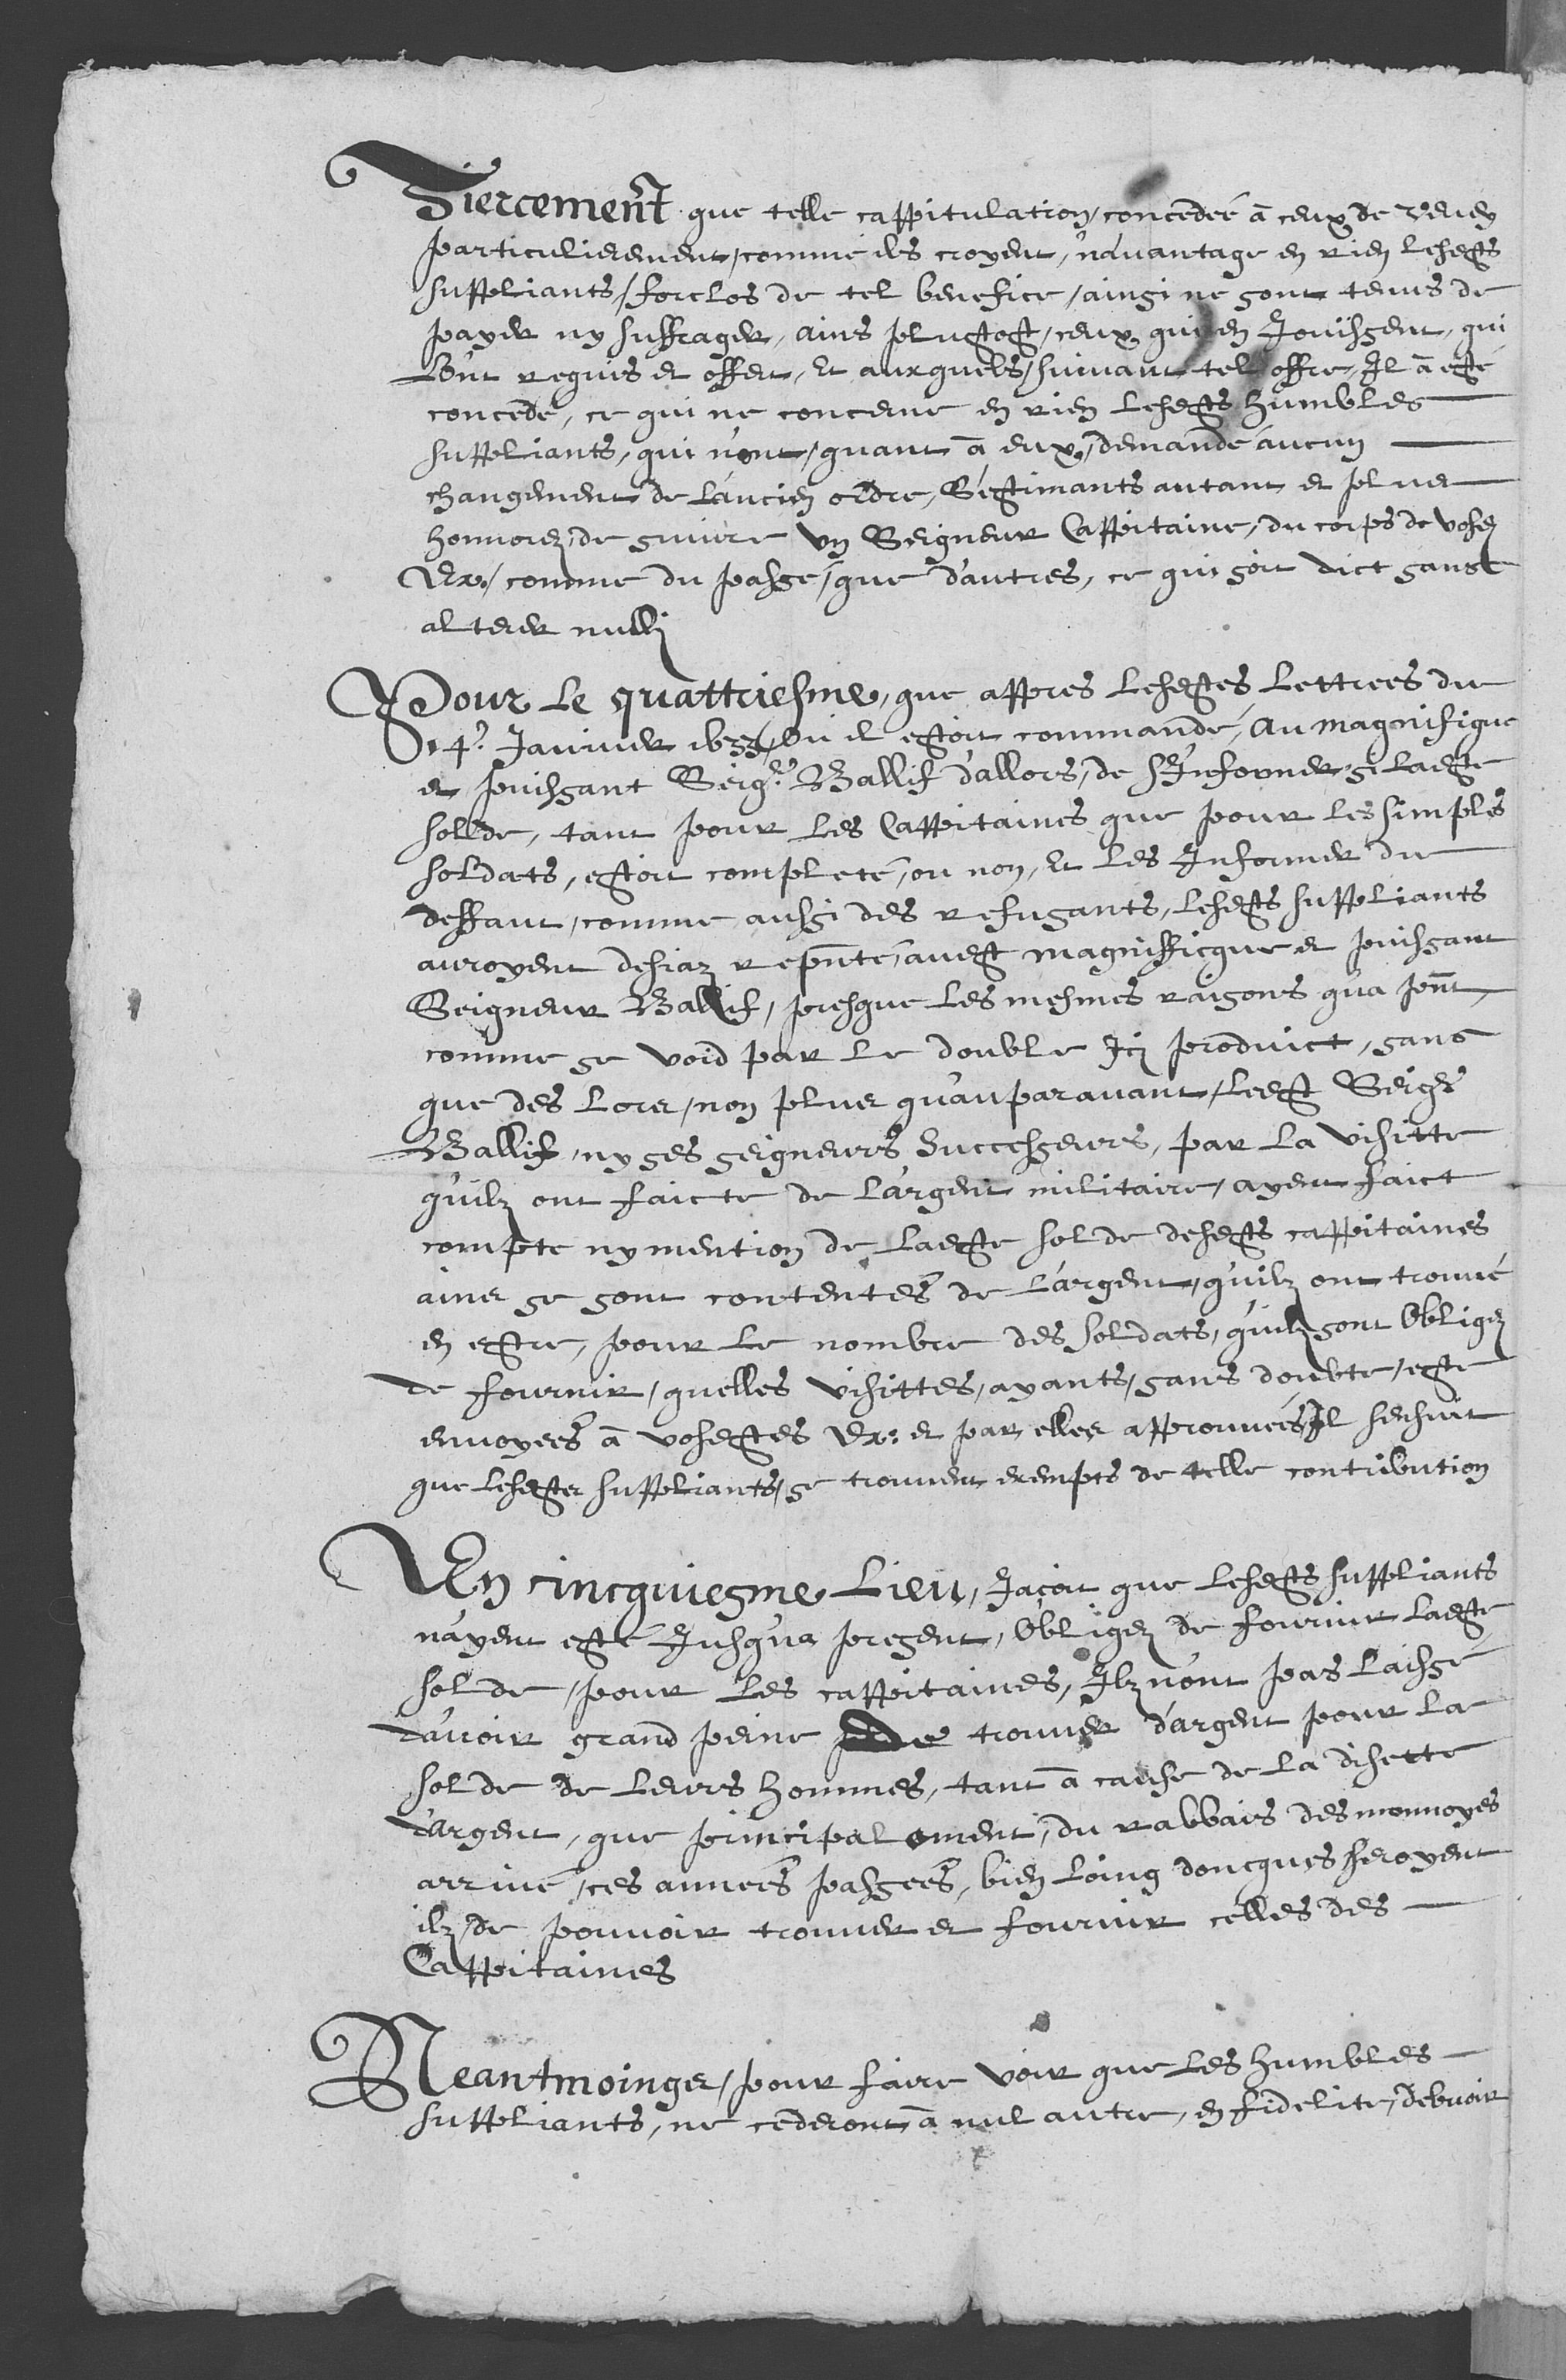 Tiercement que telle cappitulation, concedée à ceux de Vevey
particulierement, comme ils croyent, n'avantage en rien lesdits
suppliants, forclos de tel benefice, ainsi ne sont tenus de
payer ny suffrager, ains plustost, ceux qui en Jouissent, qui
l'ont requis et offert, Et auxquels, suivant tel offre, Il a esté
concedé, ce qui ne concerne en rien lesdits humbles
suppliants, qui n'ont, quant à eux, demandé aucun
changement de l'ancien ordre, s'estimants autant et plus
honnorez, de suivre un Seigneur Cappitaine, du corps de vosd
Ex. comme du passé, que d'autres, ce qui soit dict sans
alterer nully
Pour le quattriesme, que appres lesdites lettrees du
14e Janvier, Ou il estoit commandé, au magnifique
et puissant Seigr Ballif d'allors, de s'Informer, si ladite
solde, tant pour les Cappitaines que pour les simples
soldats, estoit completé, ou non, Et les Informer du
deffaut, comme aussi des refusants, lesdits suppliants
auroyent desjaz repnte, audit magnifficque et puissant
Seigneur Ballif, presque les mesmes raisons qu'a pnt,
comme se void par le double Icy produict, sans
que des lors, non plus qu'auparavant, ledit Seigr
Ballif, ny ses seigneurs successeurs, par la visitte
qu'ilz ont faicte de l'argent militaire, ayent faict
compte ny mention de ladite solde desdits cappitaines
ains se sont contentés de l'argent, qu'ilz ont trouvé
en estre, pour le nombre des soldats, qu'ilz sont Obligez
de fournir, quelles visittes, ayants, sans doubte, esté
envoyeés à vosdites Ex: et par elles approuveés Il sensuit
que lesdits suppliants, se trouvent exempts de telle contribution
En cincquiesme Lieu, Jaçoit que lesdits suppliants
n'ayent esté Jusqu'a present, Obligez de fournir ladite
solde, pour les cappitaines, Ilz n'ont pas laissé
d'avoir grand peine de trouver d'argent pour la
solde de leurs hommes, tant à cause de la disette
d'argent, que principalement, du rabbais des monnoyes
arrivé, ces anneés passeés, bien loing doncques seroyent
ilz, de pouvoir trouver et fournir celles des
Cappitaines
Neantmoings, pour faire voir que les humbles
suppliants, ne cederont à nul autre, en fidelité, debvoir